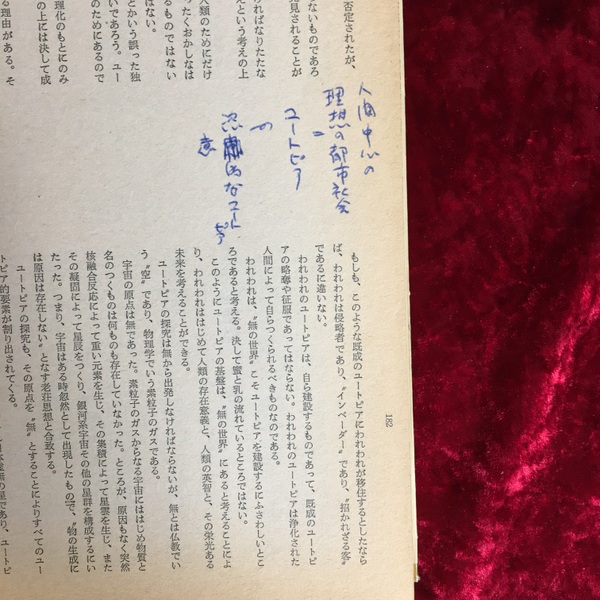 人間中心の
理想の都市社会
＝
ユートピア
へ
的なユート
ピア
意
否定されたが、
ないものであろ
見されることが
ければなりたたな
えという考えの上
人類のためにだけ
ったくおかしなは
るものではない
はない。
とかいう誤った独
いであろう。ユー
のためにあるので
理化のもとにのみ
の上には決して成
理由がある。そ
162
もしも、このような既成のユートピアにわれわれが移住するとしたなら
ば、われわれは侵略者であり、〝インベーダー〟であり、〝招かれざる客〟
であるに違いない。
われわれのユートピアは、自ら建設するものであって、既成のユートピ
アの略奪や征服であってはならない。われわれのユートピアは浄化された
人間によって自らつくられるべきものなのである。
われわれは、〝無の世界〟こそユートピアを建設するにふさわしいとこ
ろであると考える。決して蜜と乳の流れているところではない。
このようにユートピアの基盤は、〝無の世界〟にあると考えることによ
り、われわれははじめて人類の存在意義と、人類の英智と、その栄光ある
未来を考えることができる。
ユートピアの探究は無から出発しなければならないが、無とは仏教でい
う〝空〟であり、物理学でいう素粒子のガスである。
宇宙の原点は無であった。素粒子のガスからなる宇宙にははじめ物質と
名のつくものは何ものも存在していなかった。ところが、原因もなく突然
核融合反応によって重い元素を生じ、その集積によって星雲を生じ、また
その凝固によって星辰をつくり、銀河系宇宙その他の星群を構成するにい
たった。つまり、宇宙はある時忽然として出現したもので、〝物の生成に
は原因は存在しない〟となす老荘思想と合致する。
ユートピアの探究も、その原点を〝無〟とすることによりすべてのユー
トピア的要素が割り出されてくる。
の星であり、ユートピ